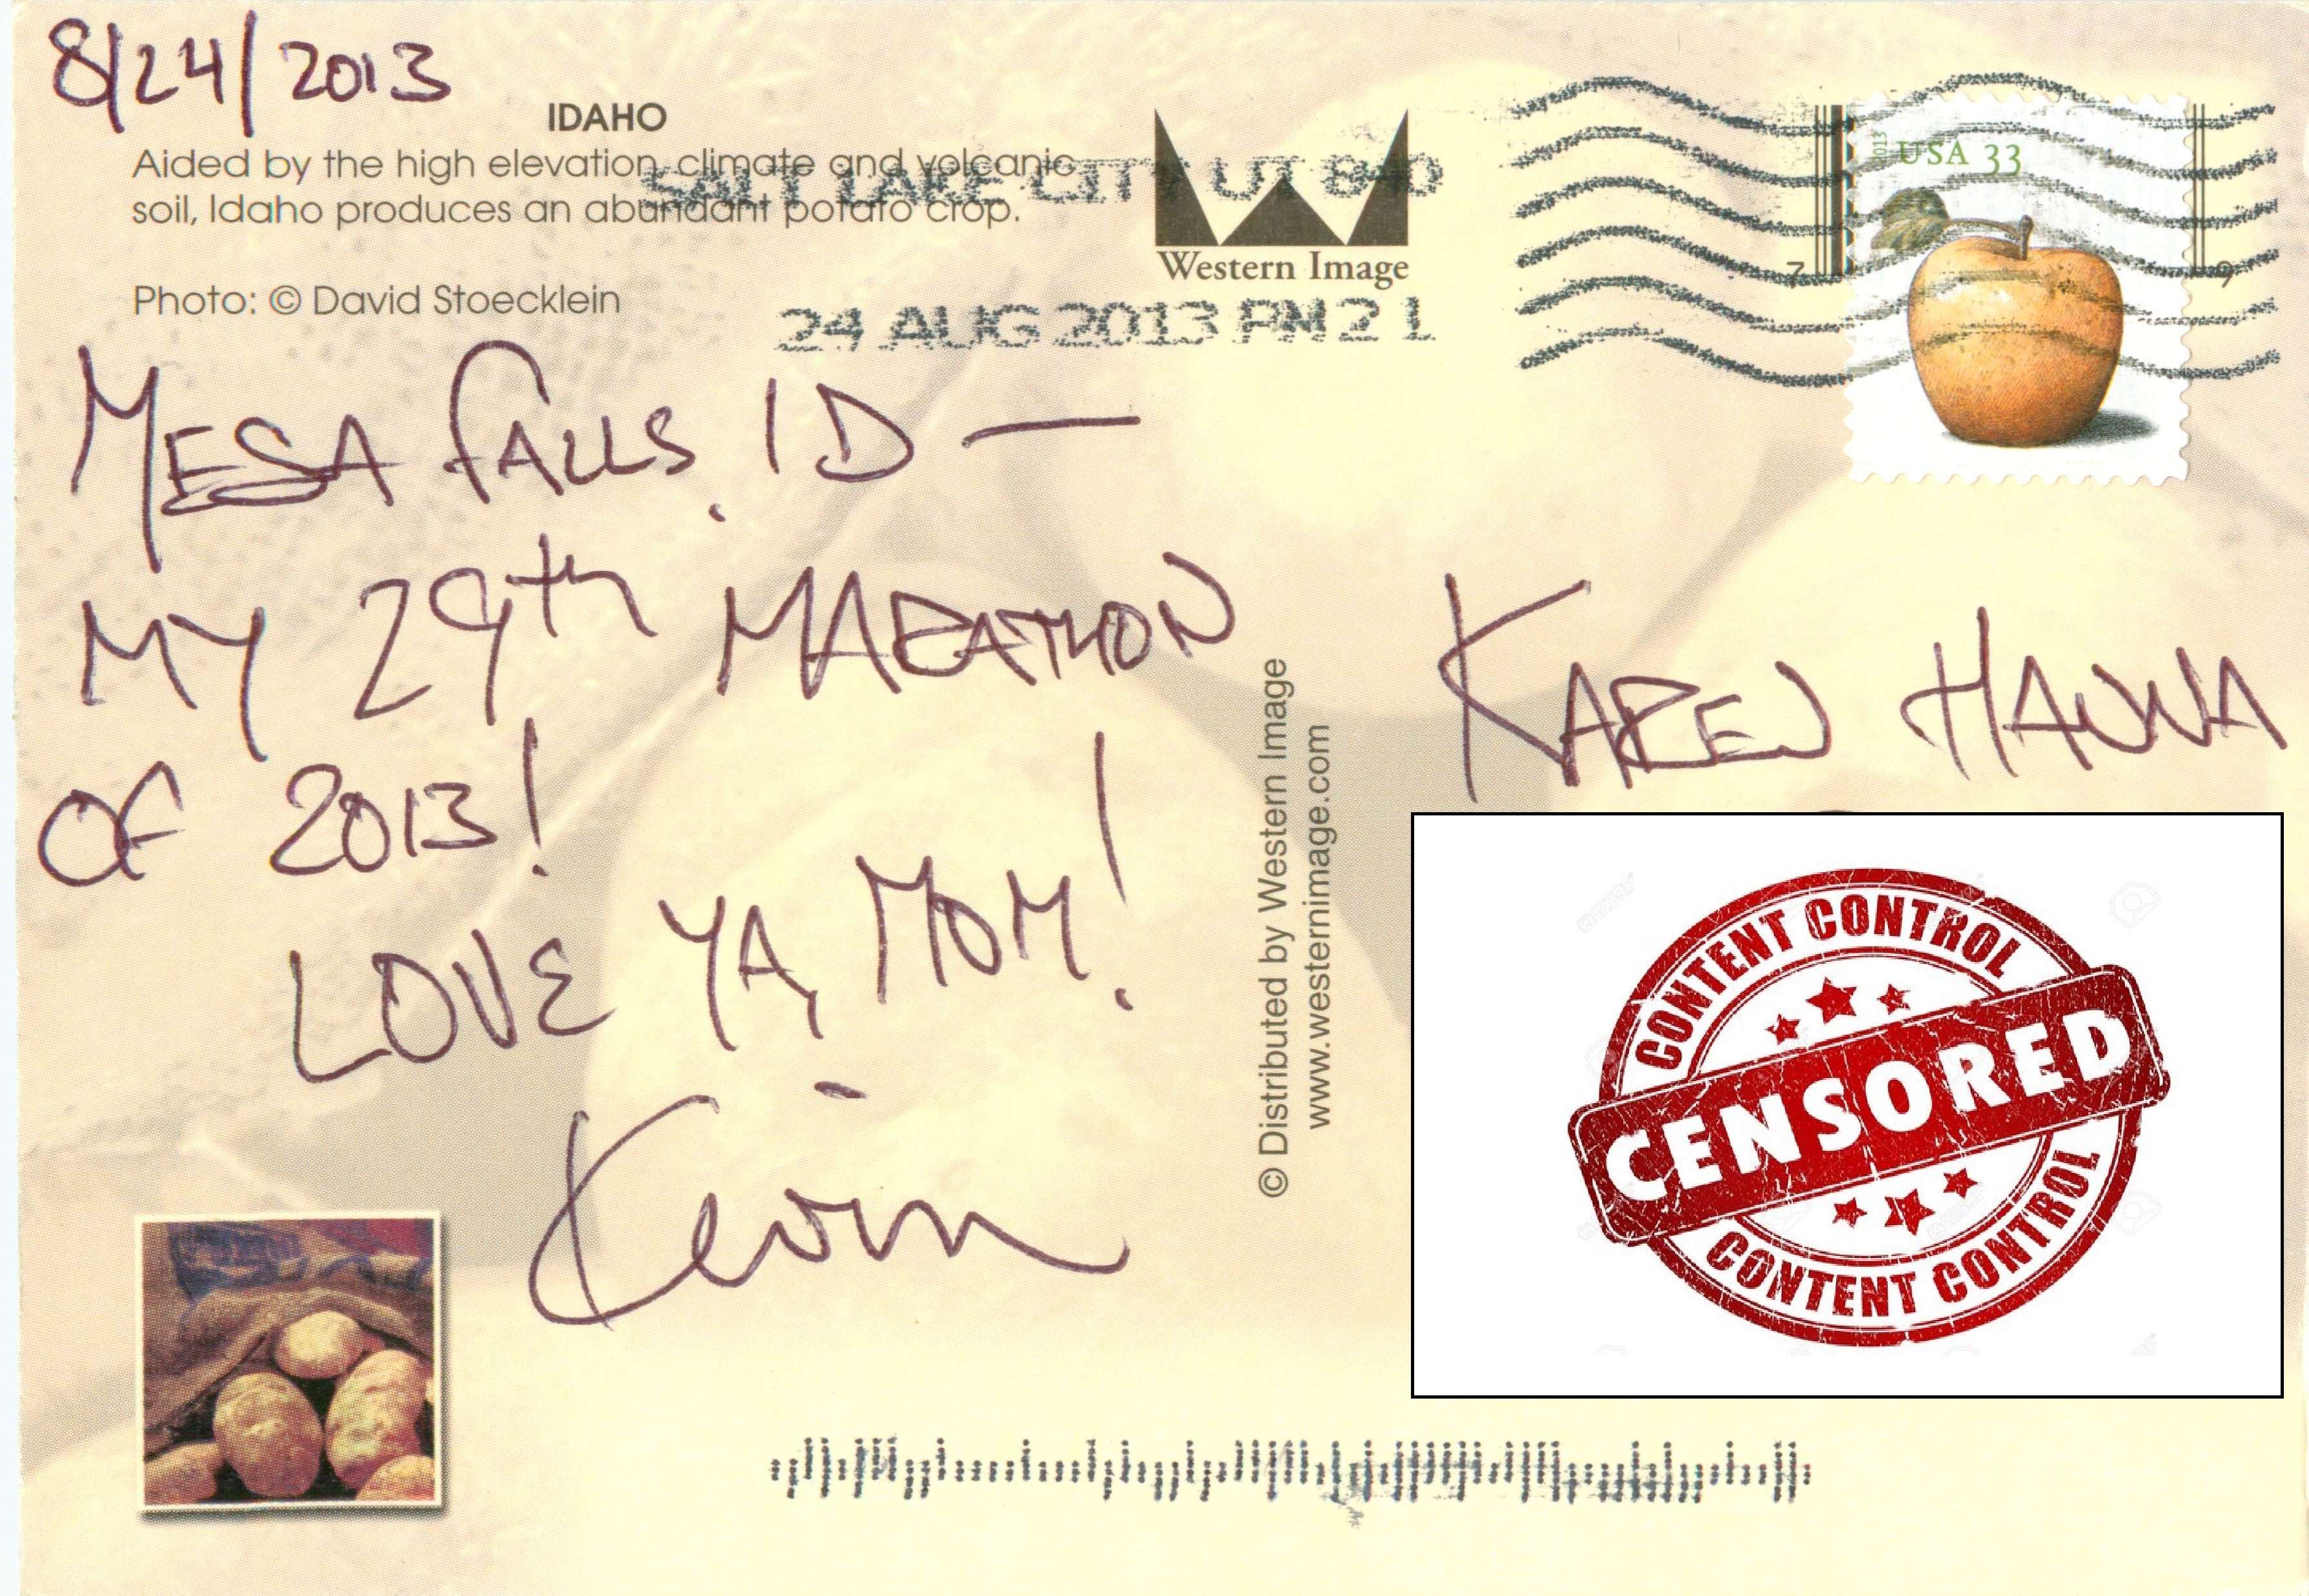 8/24/2013
IDAHO
Aided by the high elevation, climate and volcanic
soil, Idaho produces an abundant potato crop.
Photo: © David Stoecklein
SALT LAKE CITY UT 840
24 AUG 2013 PM 2 L
Western Image
2013 USA 33
7 9
MESA FALLS, ID —
MY 29th MARATHON
OF 2013!
LOVE YA, MOM!
- Kevin
© Distributed by Western Image
www.westernimage.com
KAREN HANNA
CONTENT CONTROL
CENSORED
CONTENT CONTROL